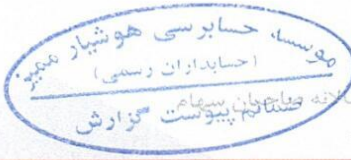 موسسه حسابرسی هوشیار ممیز
(حسابداران رسمی)
سالانه صاحبان سهام
ضمائم پیوست گزارش